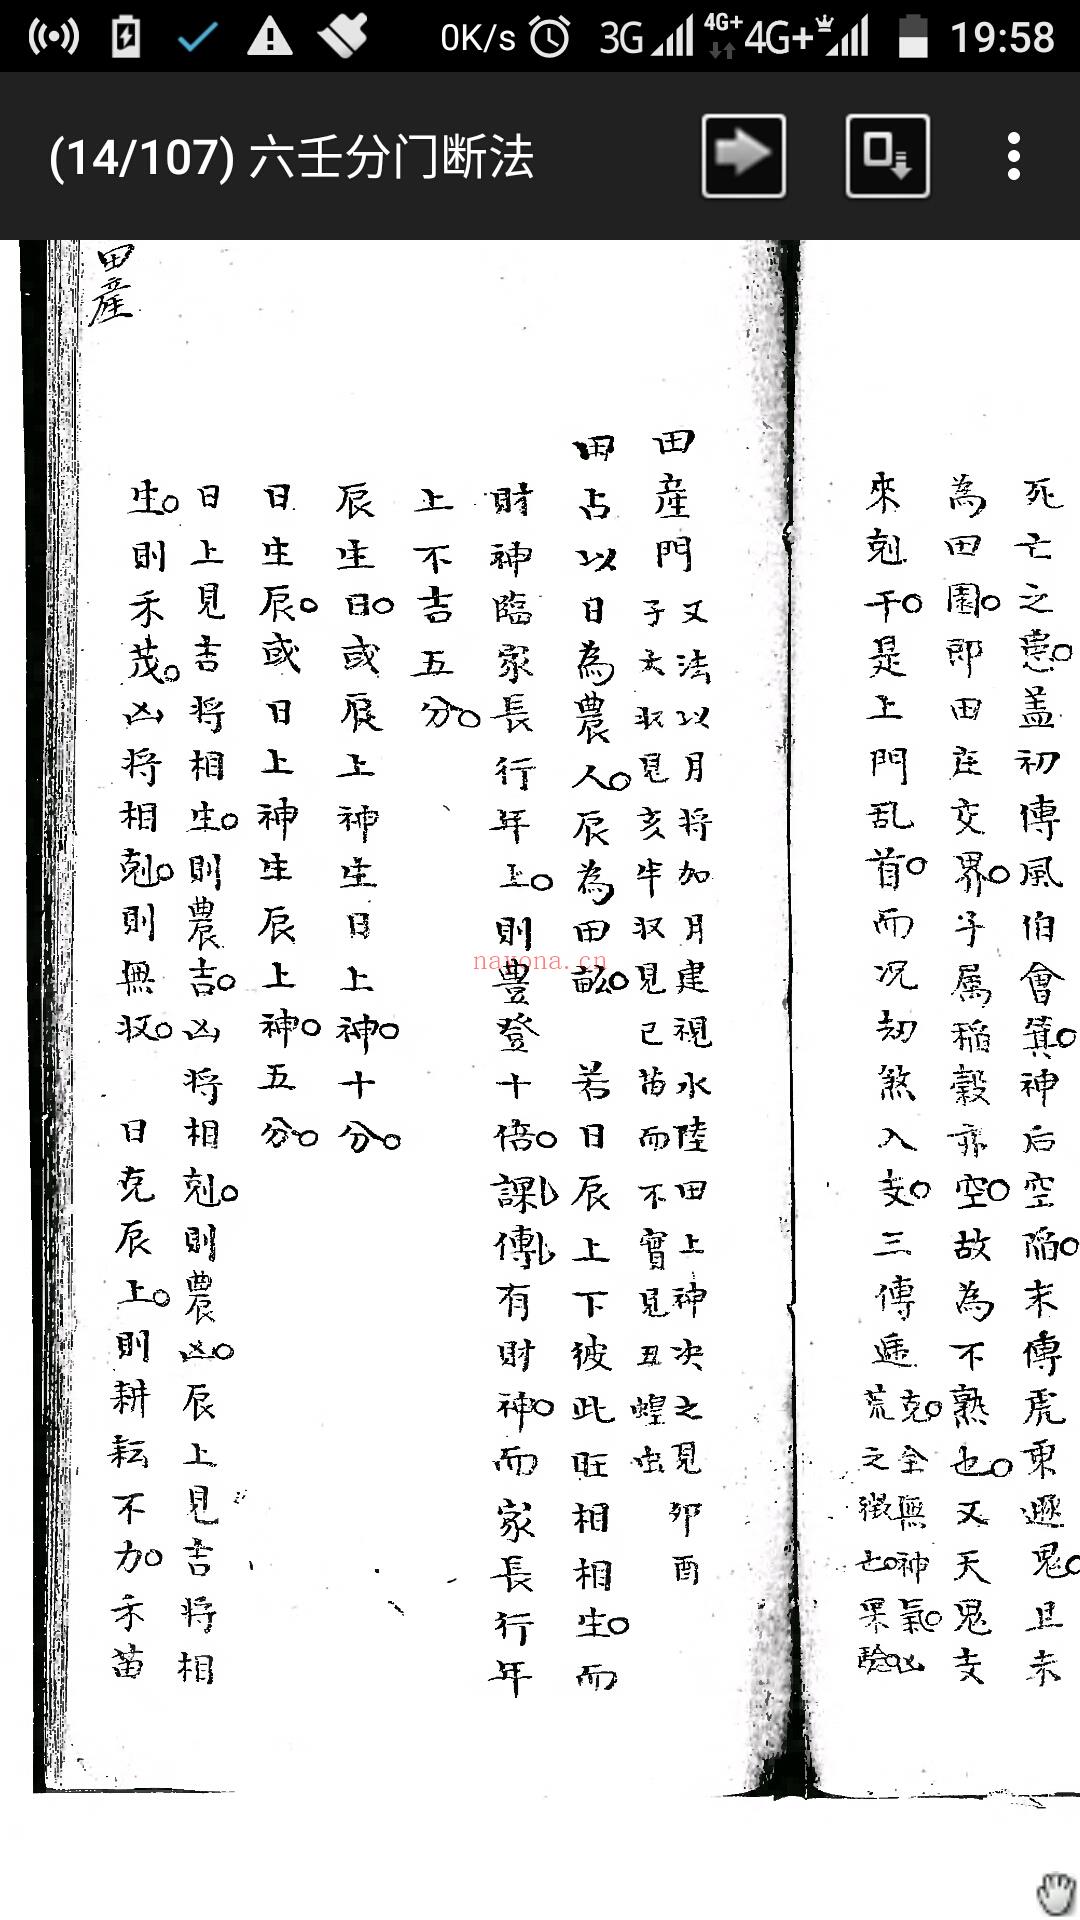 0K/s 3G 4G+ 4G+ 19:58
(14/107) 六壬分门断法
死亡之患。盖初傳風伯會箕。神后空陷。末傳虎乗遯鬼。且未
為田園。卯田庄交界。子属稻穀亦空。故為不熟也。又天鬼支
來剋干。是上門乱首。而况刼煞入支。三傳逓克。全無神氣。凶
荒之徵也。果驗
田產門 又法以月将加月建視水陸田上神决之見卯酉
子大収見亥半収見巳苗而不實見丑蝗虫
田占以日為農人。辰為田畝。 若日辰上下彼此旺相相生。而
財神臨家長行年上。則豊登十倍。課傳有財神。而家長行年
上不吉五分。
辰生日。或辰上神生日上神。十分。
日生辰。或日上神生辰上神。五分。
日上見吉将相生。則農吉。凶将相剋。則農凶。辰上見吉将相
生。則禾茂。凶将相剋。則無収。 日克辰上。則耕耘不力。禾苗
田産
nayona.cn